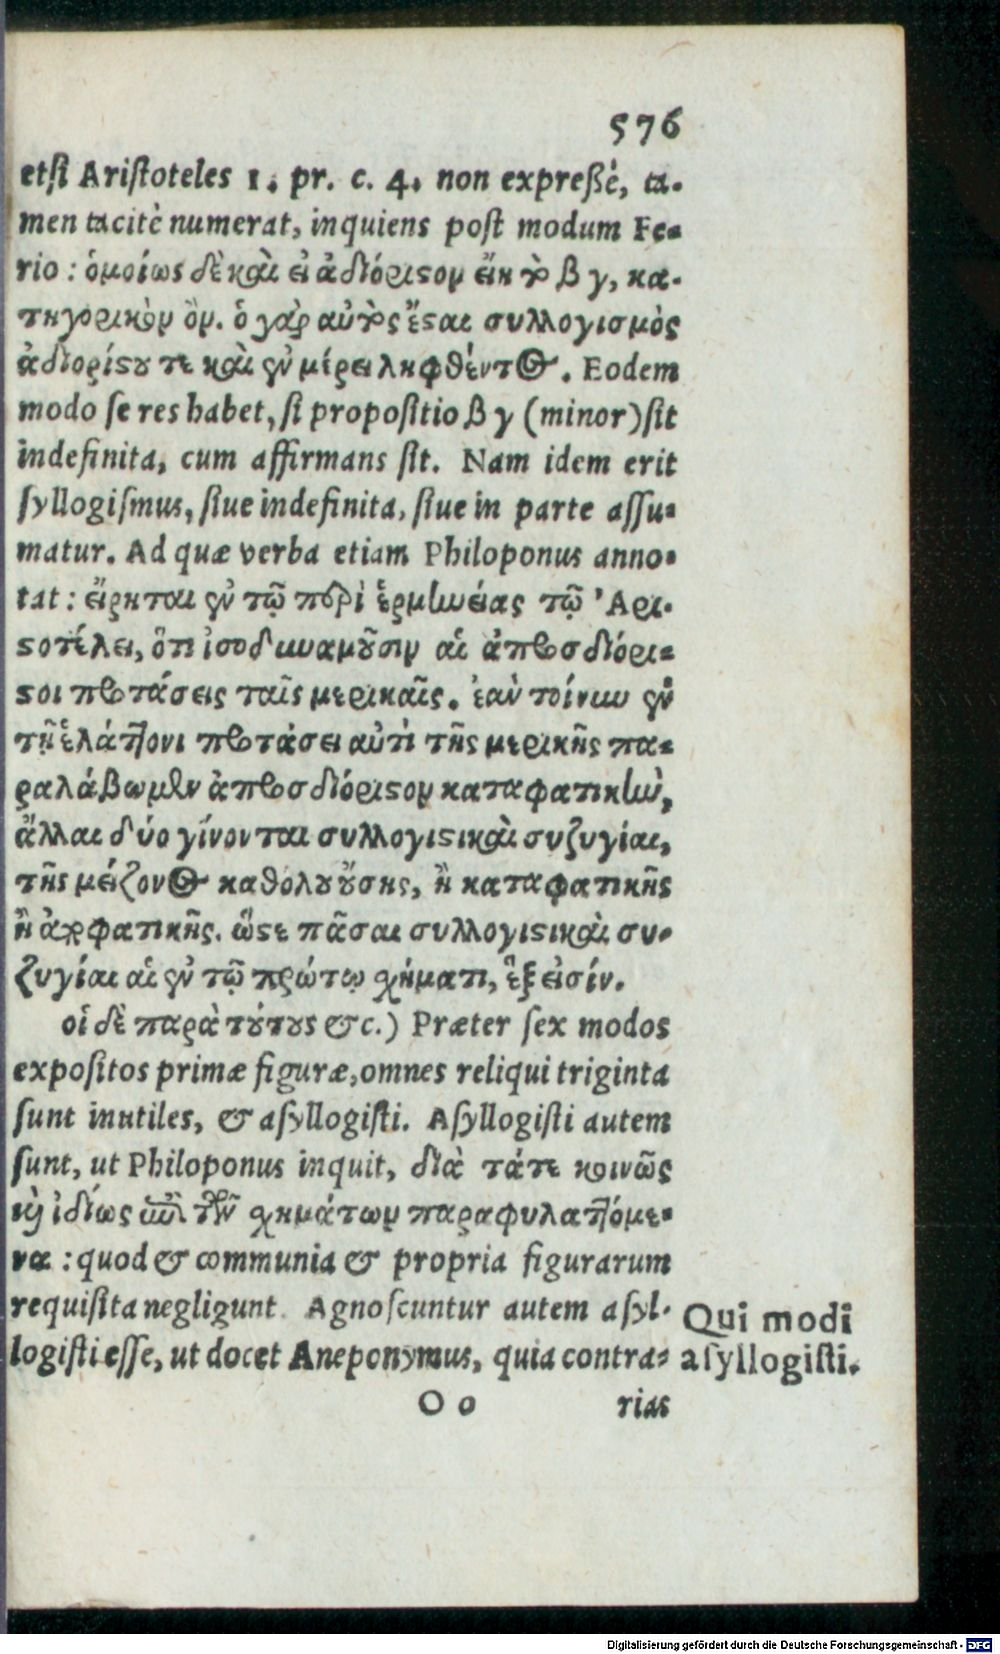 576
etſi Ariſtoteles 1. pr. c. 4. non expreßè, ta-
men tacitè numerat, inquiens poſt modum Fe-
rio : ὁμοίως δὲ καὶ εἰ ἀδιόριϛον εἴη τὸ β γ, κα-
τηγορικὸν ὂν. ὁ γὰρ αὐτὸς ἔϛαι συλλογισμὸς
ἀδιορίϛου τε καὶ ἐν μέρει ληφθέντος. Eodem
modo ſe res habet, ſi propoſitio β γ (minor) ſit
indefinita, cum affirmans ſit. Nam idem erit
ſyllogiſmus, ſiue indefinita, ſiue in parte aſſu-
matur. Ad quæ verba etiam Philoponus anno-
tat : εἴρηται ἐν τῷ περὶ ἑρμηνείας τῷ Ἀρι-
ϛοτέλει, ὅτι ἰσοδυναμοῦσιν αἱ ἀπροσδιόρι-
ϛοι προτάσεις ταῖς μερικαῖς. ἐὰν τοίνυν ἐν
τῇ ἐλάττονι προτάσει αὐτὶ τῆς μερικῆς πα-
ραλάβωμεν ἀπροσδιόριϛον καταφατικὴν,
ἄλλαι δύο γίνονται συλλογιϛικαὶ συζυγίαι,
τῆς μείζονος καθολου οὔσης, ἢ καταφατικῆς
ἢ ἀποφατικῆς. ὥϛε πᾶσαι συλλογιϛικαὶ συ-
ζυγίαι αἱ ἐν τῷ πρώτῳ χήματι, ἓξ εἰσίν.
οἱ δὲ παρὰ τούτους &c.) Præter ſex modos
expoſitos primæ figuræ, omnes reliqui triginta
ſunt inutiles, & aſyllogiſti. Aſyllogiſti autem
ſunt, ut Philoponus inquit, διὰ τάτε κοινῶς
καὶ ἰδίως ἐπὶ τῶν χημάτων παραφυλαττόμε-
να : quod & communia & propria figurarum
requiſita negligunt. Agnoſcuntur autem aſyl-
logiſti eſſe, ut docet Aneponymus, quia contra-
Qui modi
aſyllogiſti.
O o
rias
Digitalisierung gefördert durch die Deutsche Forschungsgemeinschaft - DFG